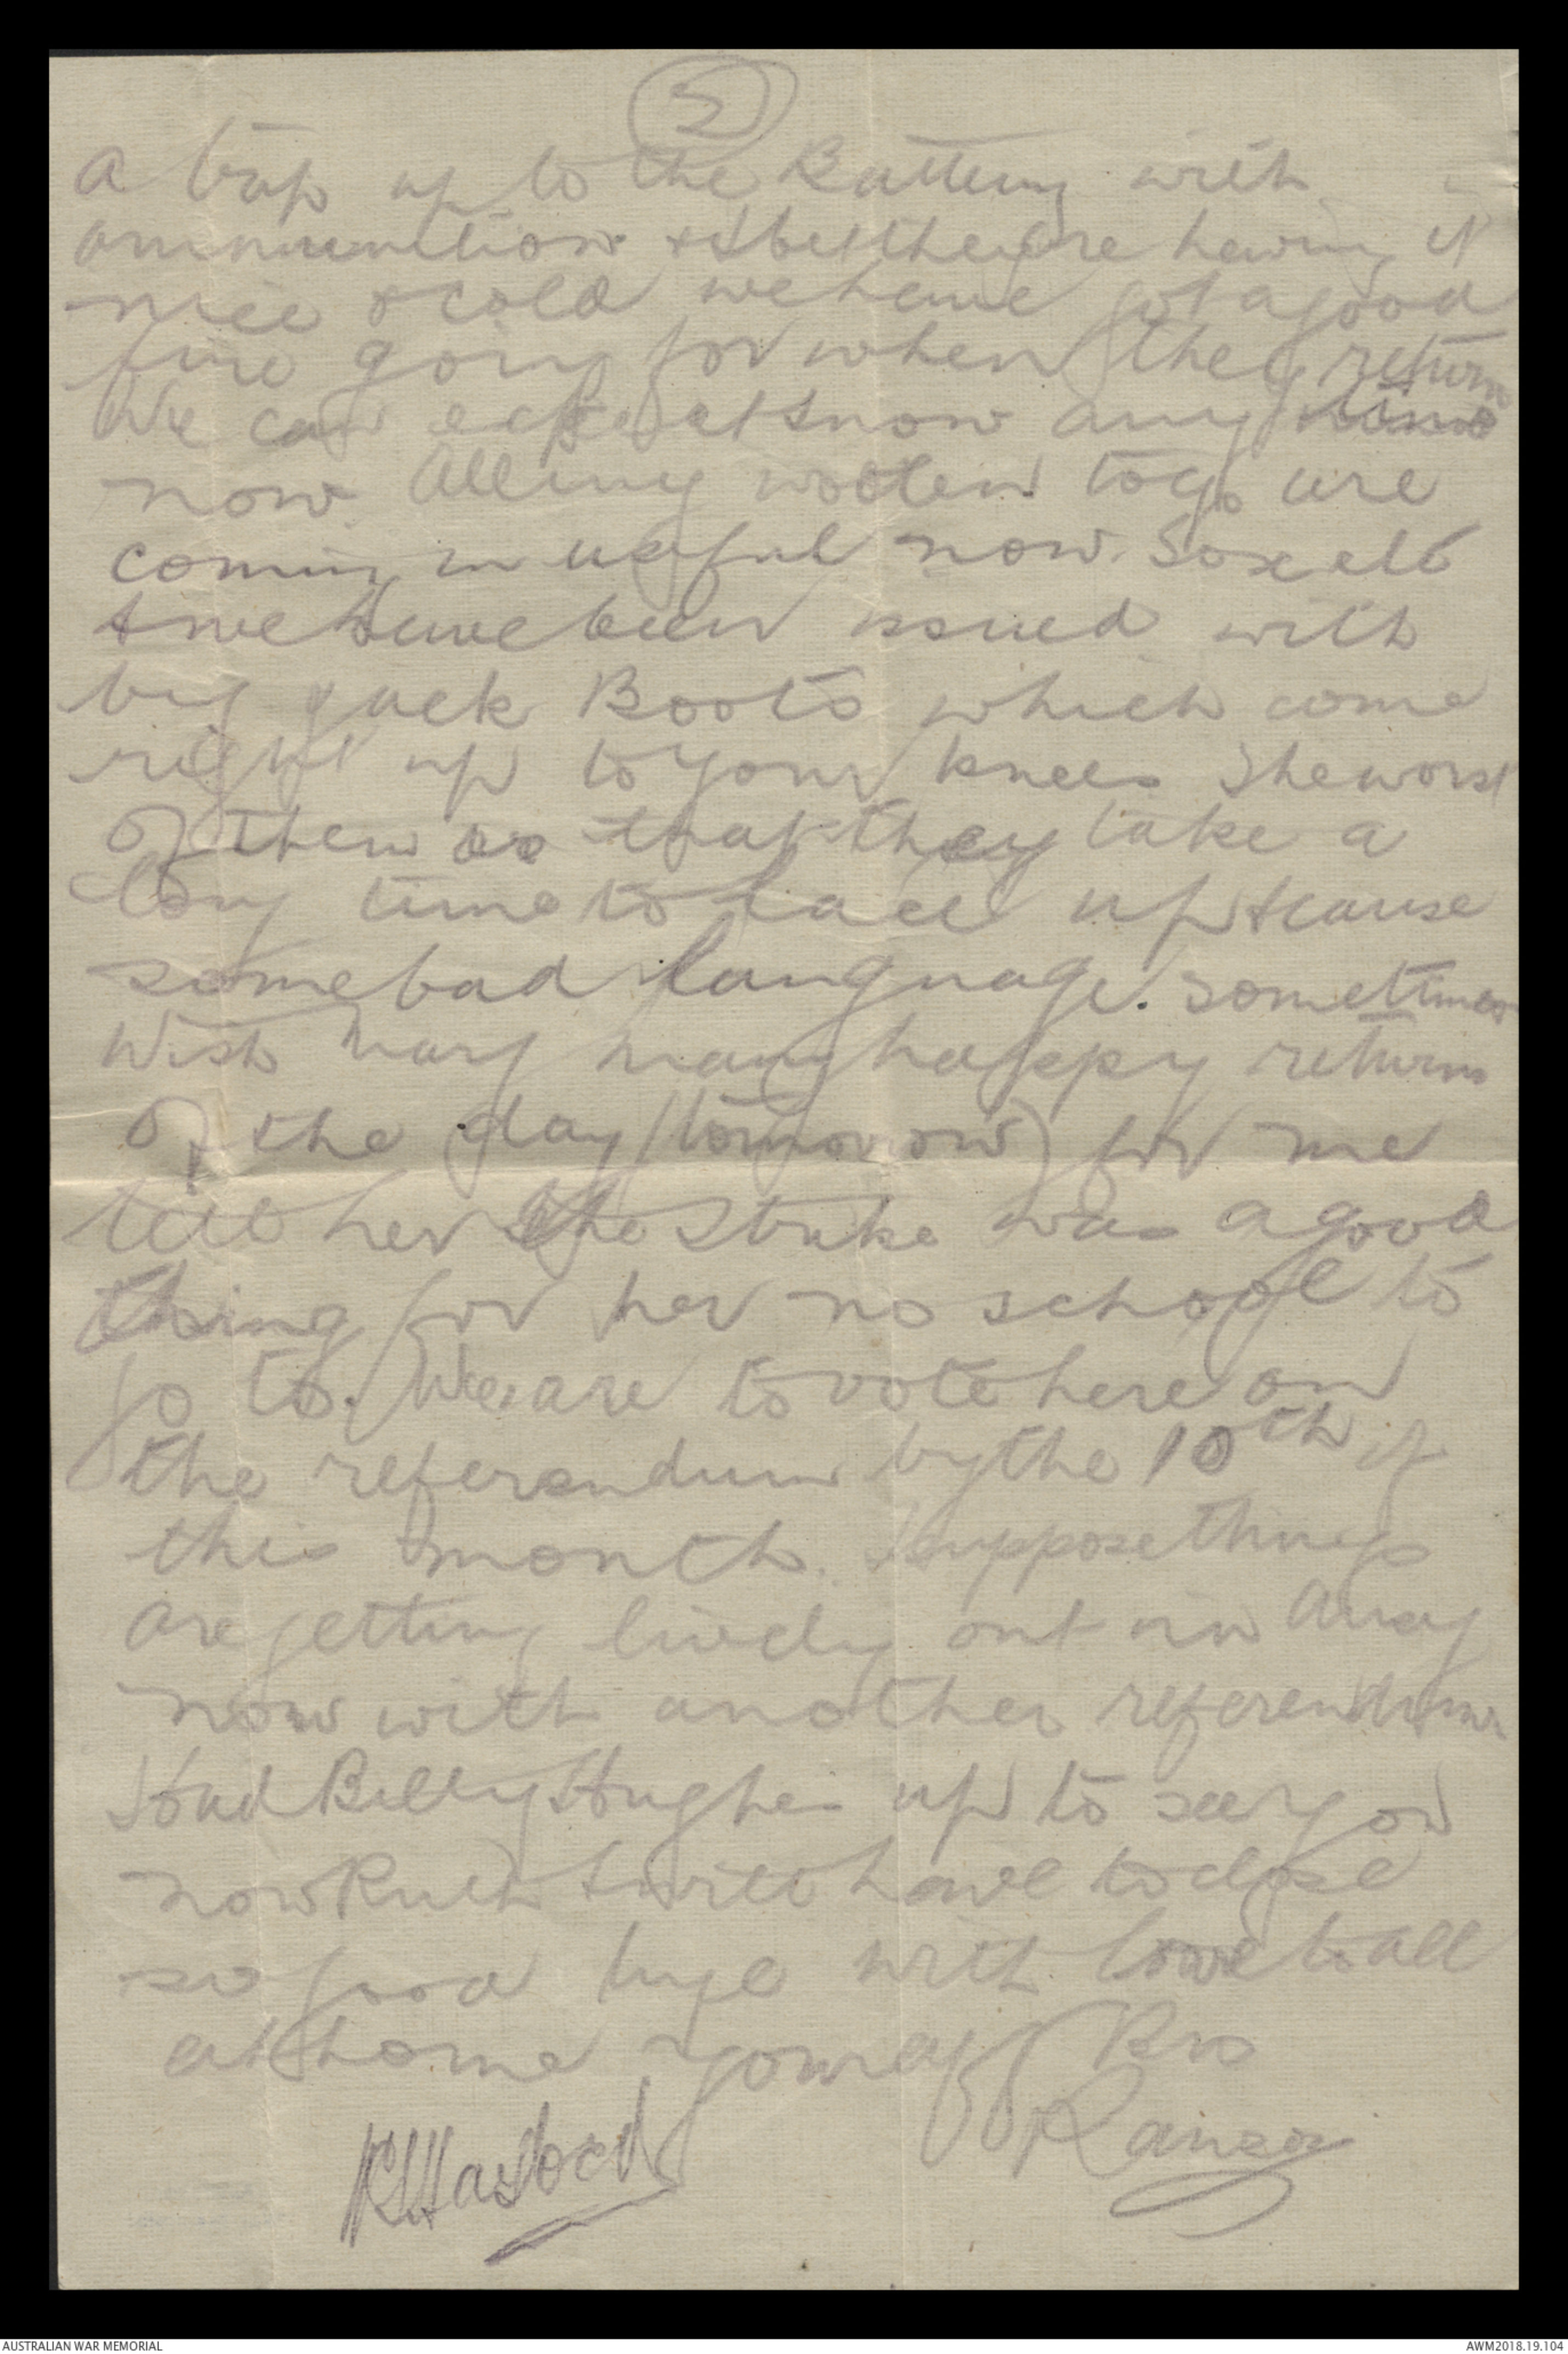 5
a trip up to the Battery with
ammunition & I bet they're having it
nice & cold we have got a good
fire going for when they return
We can expect snow any time
now. All my woolen togs are
coming in useful now. Sox etc
& we have been issued with
big jack Boots which come
right up to your knees The worst
of them is that they take a
long time to lace up & cause
some bad language. sometimes
Wish Mary many happy returns
of the day (tomorrow) for me
tell her the Strike was a good
thing for her no school to
go to. We are to vote here on
the referendum by the 10th of
this month. I suppose things
are getting lively out in Aussy
now with another referendum
Had Billy Hughes up to see you
now Ruth I will have to close
so good bye with love to all
at home Your aff Bro
Ranson
AUSTRALIAN WAR MEMORIAL
AWM2018.19.104